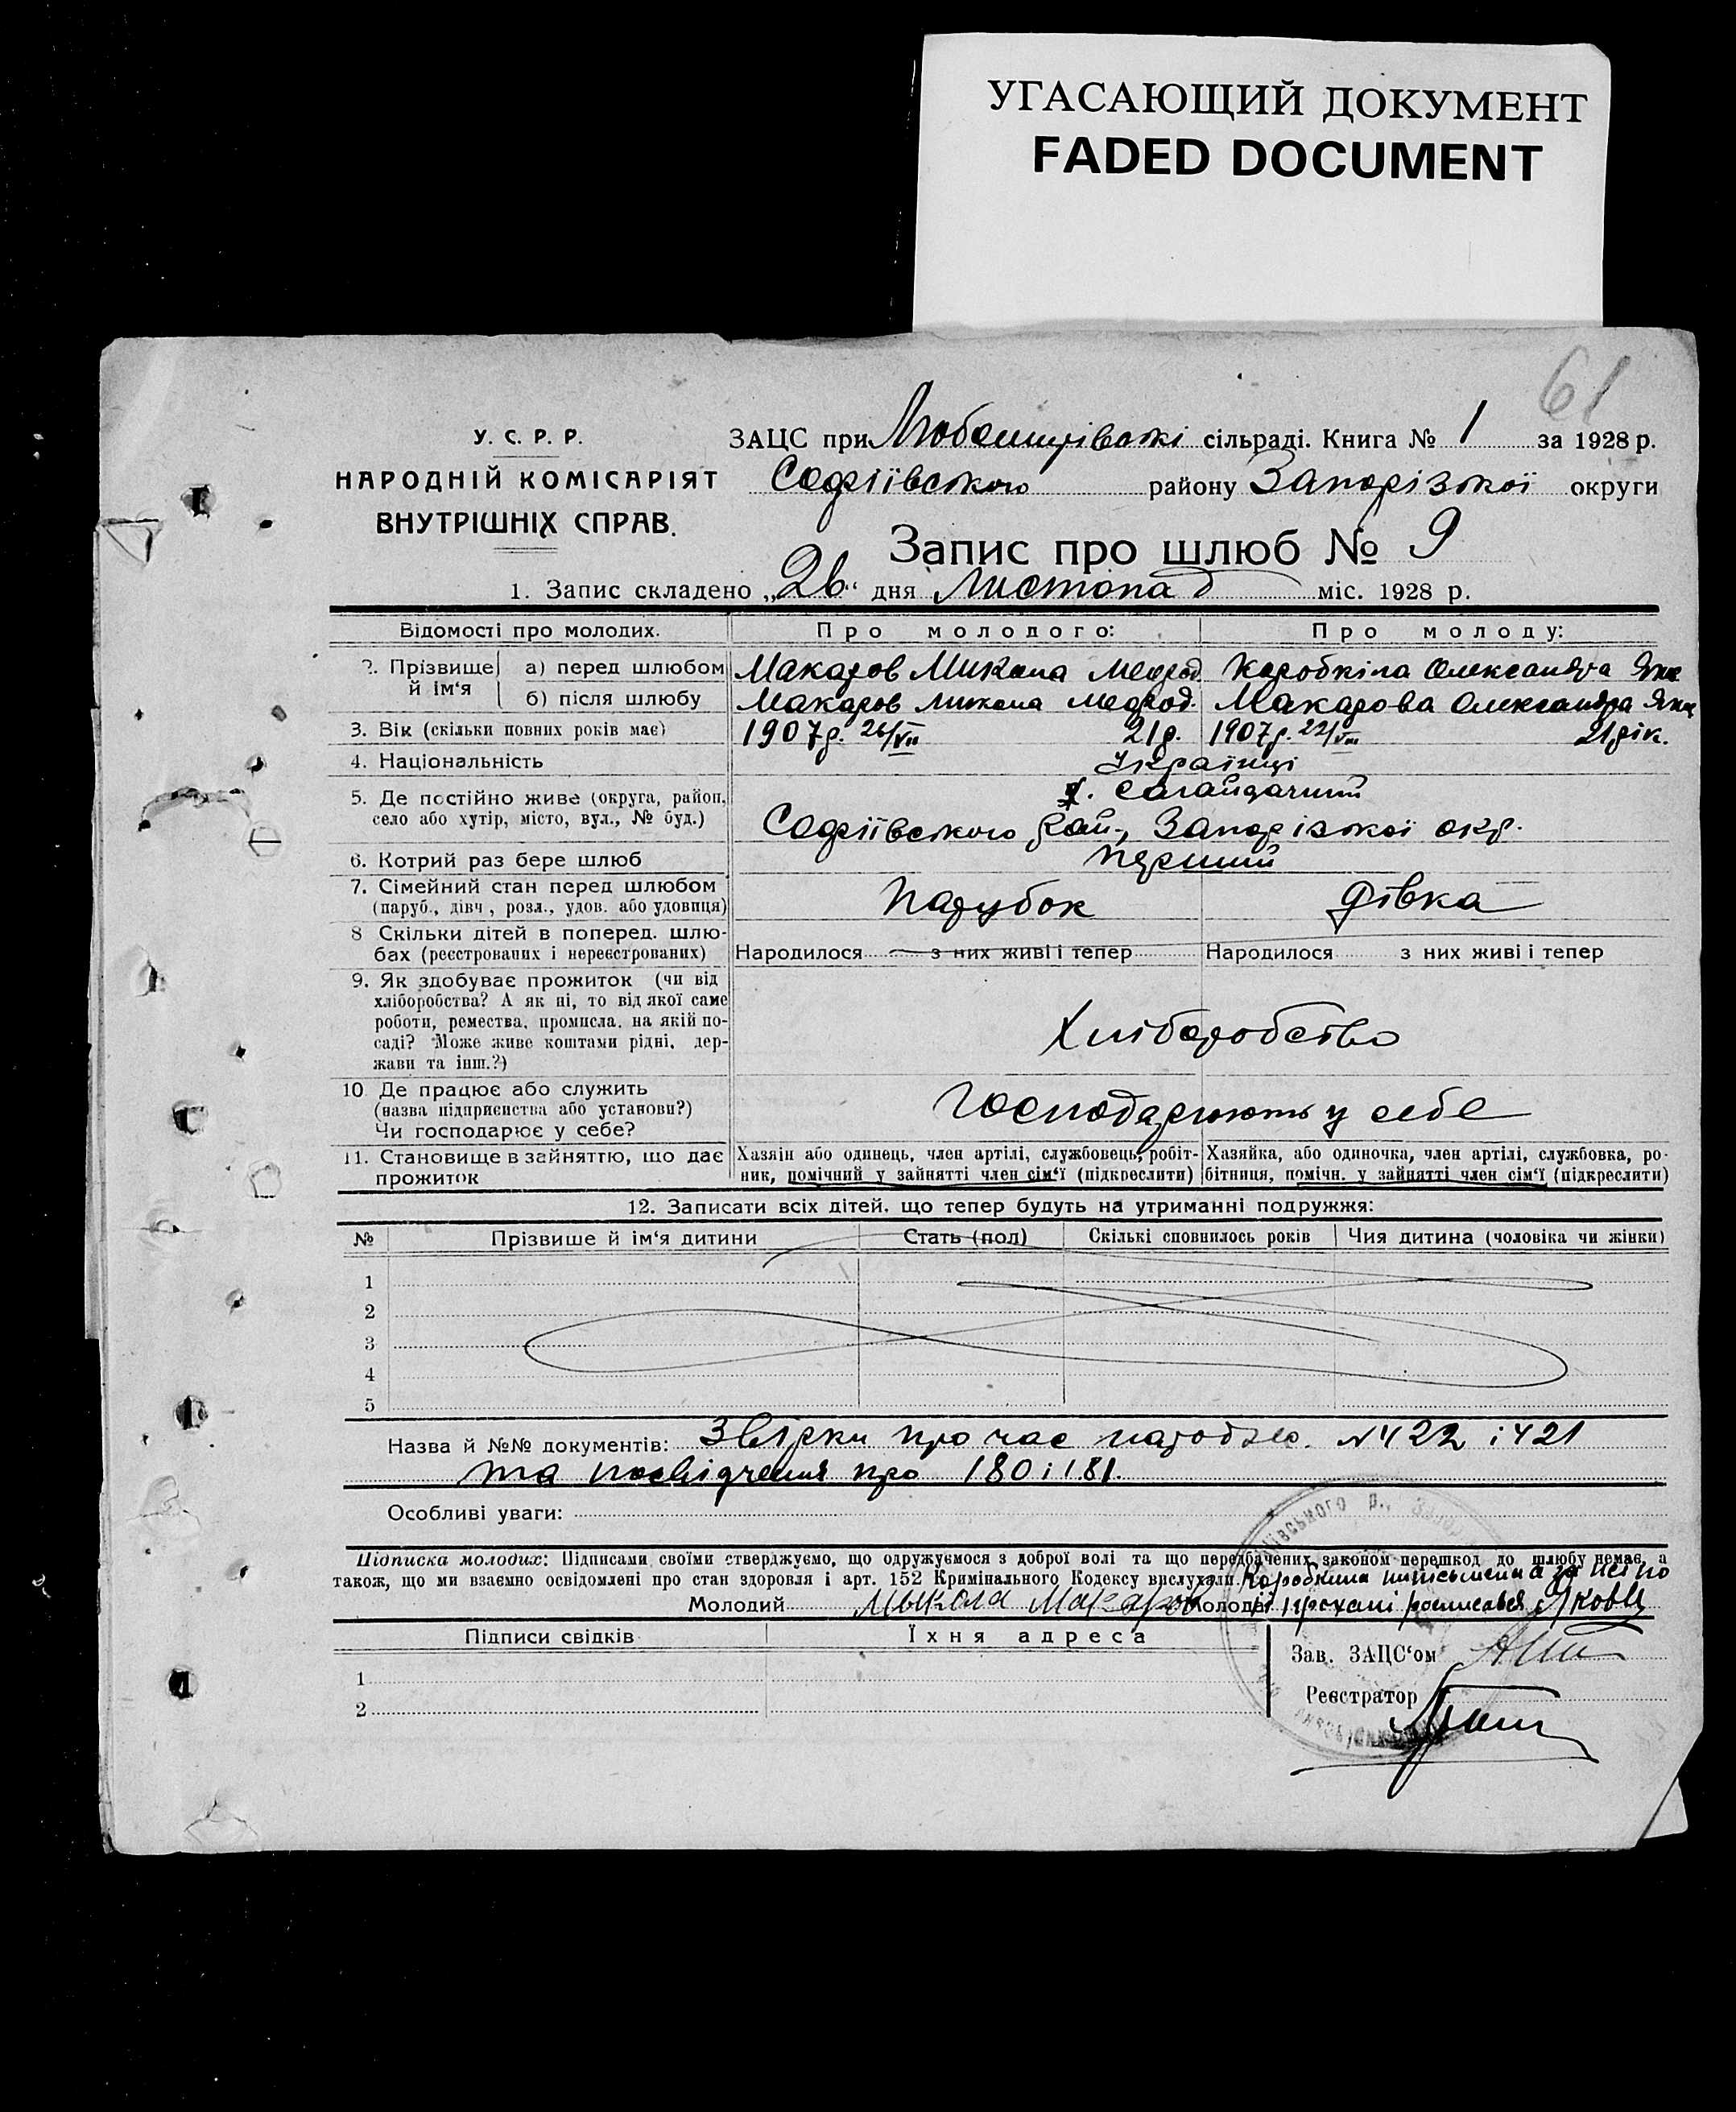 УГАСАЮЩИЙ ДОКУМЕНТ
FADED DOCUMENT
61
У. С. Р. Р.
НАРОДНІЙ КОМІСАРІЯТ
ВНУТРІШНІХ СПРАВ.
ЗАЦС при Любомирівській сільраді. Книга № 1 за 1928 р.
Софіївського району Запорізької округи
Запис про шлюб № 9
1. Запис складено „26“ дня Листопад міс. 1928 р.
Відомості про молодих. Про молодого: Про молоду:
2. Прізвище й ім‘я
а) перед шлюбом Макаров Микола Коробкіна Олександра
б) після шлюбу Макаров Микола Макарова Олександра
3. Вік (скільки повних років має) 1907 р. 26/VII 21 р. 1907 р. 22/VIII 21 рік.
4. Національність Українці
5. Де постійно живе (округа, район, село або хутір, місто, вул., № буд.) х. Сагайдачний
Софіївського рай., Запорізької окр.
6. Котрий раз бере шлюб перший
7. Сімейний стан перед шлюбом Парубок Дівка
(паруб., дівч., розл., удов. або удовиця)
8 Скільки дітей в поперед. шлю-
бах (реєстрованих і нереєстрованих) Народилося з них живі і тепер Народилося з них живі і тепер
9. Як здобуває прожиток (чи від
хліборобства? А як ні, то від якої саме
роботи, ремества, промисла, на якій по-
саді? Може живе коштами рідні, дер-
жави та інш.?) Хліборобство
10. Де працює або служить
(назва підприємства або установи?) Господарюють у себе
Чи господарює у себе?
11. Становище в зайняттю, що дає Хазяїн або одинець, член артілі, службовець, робіт- Хазяйка, або одиночка, член артілі, службовка, ро-
прожиток ник, помічний у зайнятті член сім‘ї (підкреслити) бітниця, помічн. у зайнятті член сім‘ї (підкреслити)
12. Записати всіх дітей, що тепер будуть на утриманні подружжя:
№ Прізвище й ім‘я дитини Стать (пол) Скількі сповнилось років Чия дитина (чоловіка чи жінки)
1
2
3
4
5
Назва й №№ документів: про час № 422 і 421
та посвідчення про 180 і 181.
Особливі уваги:
Підписка молодих: Підписами своїми стверджуємо, що одружуємося з доброї волі та що передбачених законом перешкод до шлюбу немає, а
також, що ми взаємно освідомлені про стан здоровля і арт. 152 Кримінального Кодексу вислухали. Коробкина за неї по
Молодий Мыкола Макаров Молода прохані росписавсь
Підписи свідків Їхня адреса
1
2
Зав. ЗАЦС‘ом
Реєстратор